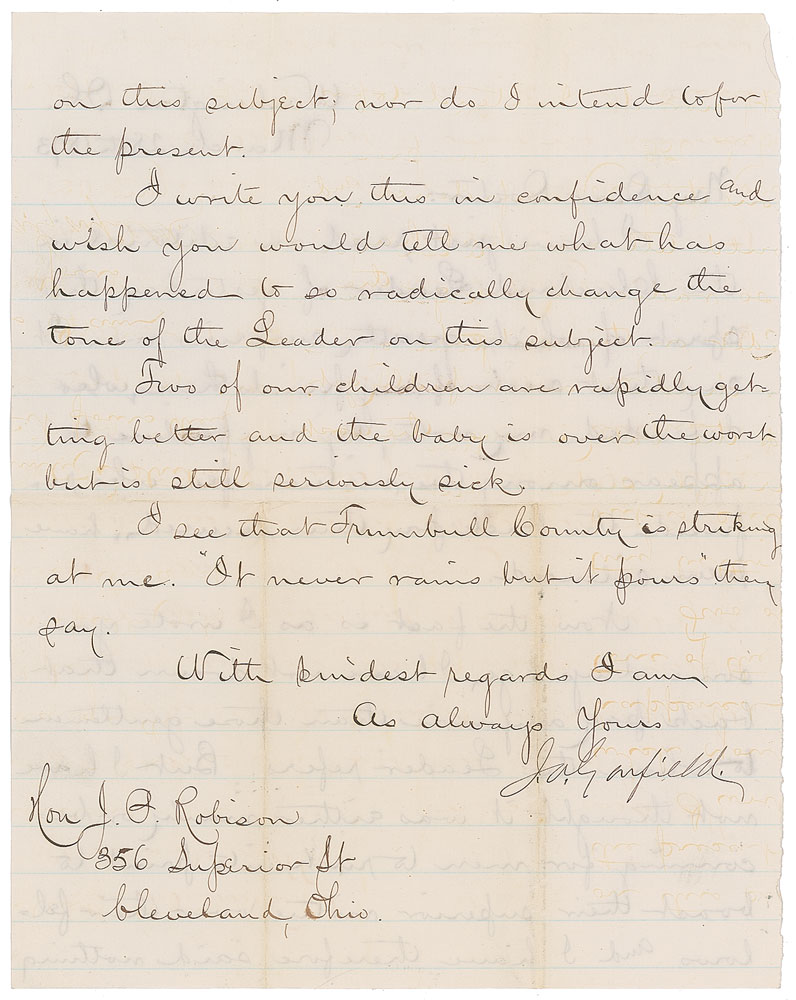 on this subject; nor do I intend to for
the present.
I write you this in confidence and
wish you would tell me what has
happened to so radically change the
tone of the Leader on this subject.
Two of our children are rapidly get=
ting better and the baby is over the worst
but is still seriously sick.
I see that Trumbull County is striking
at me. "It never rains but it pours" they
say.
With kindest regards I am
As always Yours
J. A. Garfield.
Hon J. P. Robison
356 Superior St
Cleveland, Ohio.